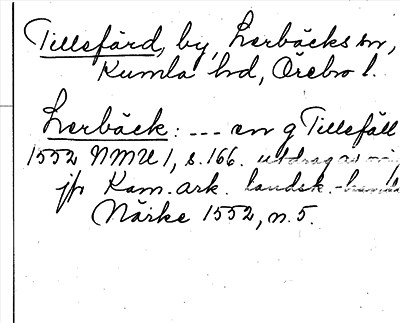 Tillsfärd, by, Lerbäcks sn,
Kumla hd, Örebro l.
Lerbäck: --- en g Tillefäll
1552 NMU 1, s. 166. utdrag av
jfr Kam. ark. landsk. handl
Närke 1552, n. 5.